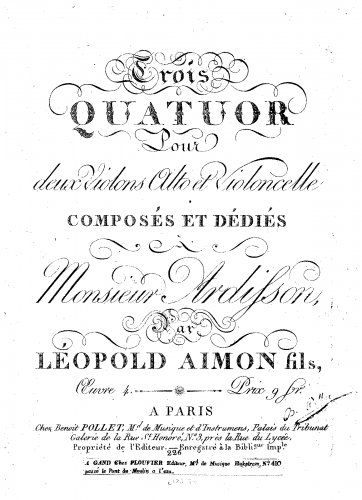 Trois
QUATUOR
Pour
deux Violons Alto et Violoncelle
COMPOSÉS ET DÉDIÉS
À
Monsieur Ardisson,
Par
LÉOPOLD AIMON fils,
Œuvre 4. Prix 9 fr.
A PARIS
Chez Benoit POLLET, Md. de Musique et d'Instrumens, Palais du Tribunat
Galerie de la Rue St. Honoré, No. 3, près la Rue du Lycée.
Propriété de l'Editeur. Enregistré à la Bibli. Imple
226
A GAND Chez PLOUVIER Editeur, Md. de Musique No. 410
passé le Pont du Moulin à l'eau.